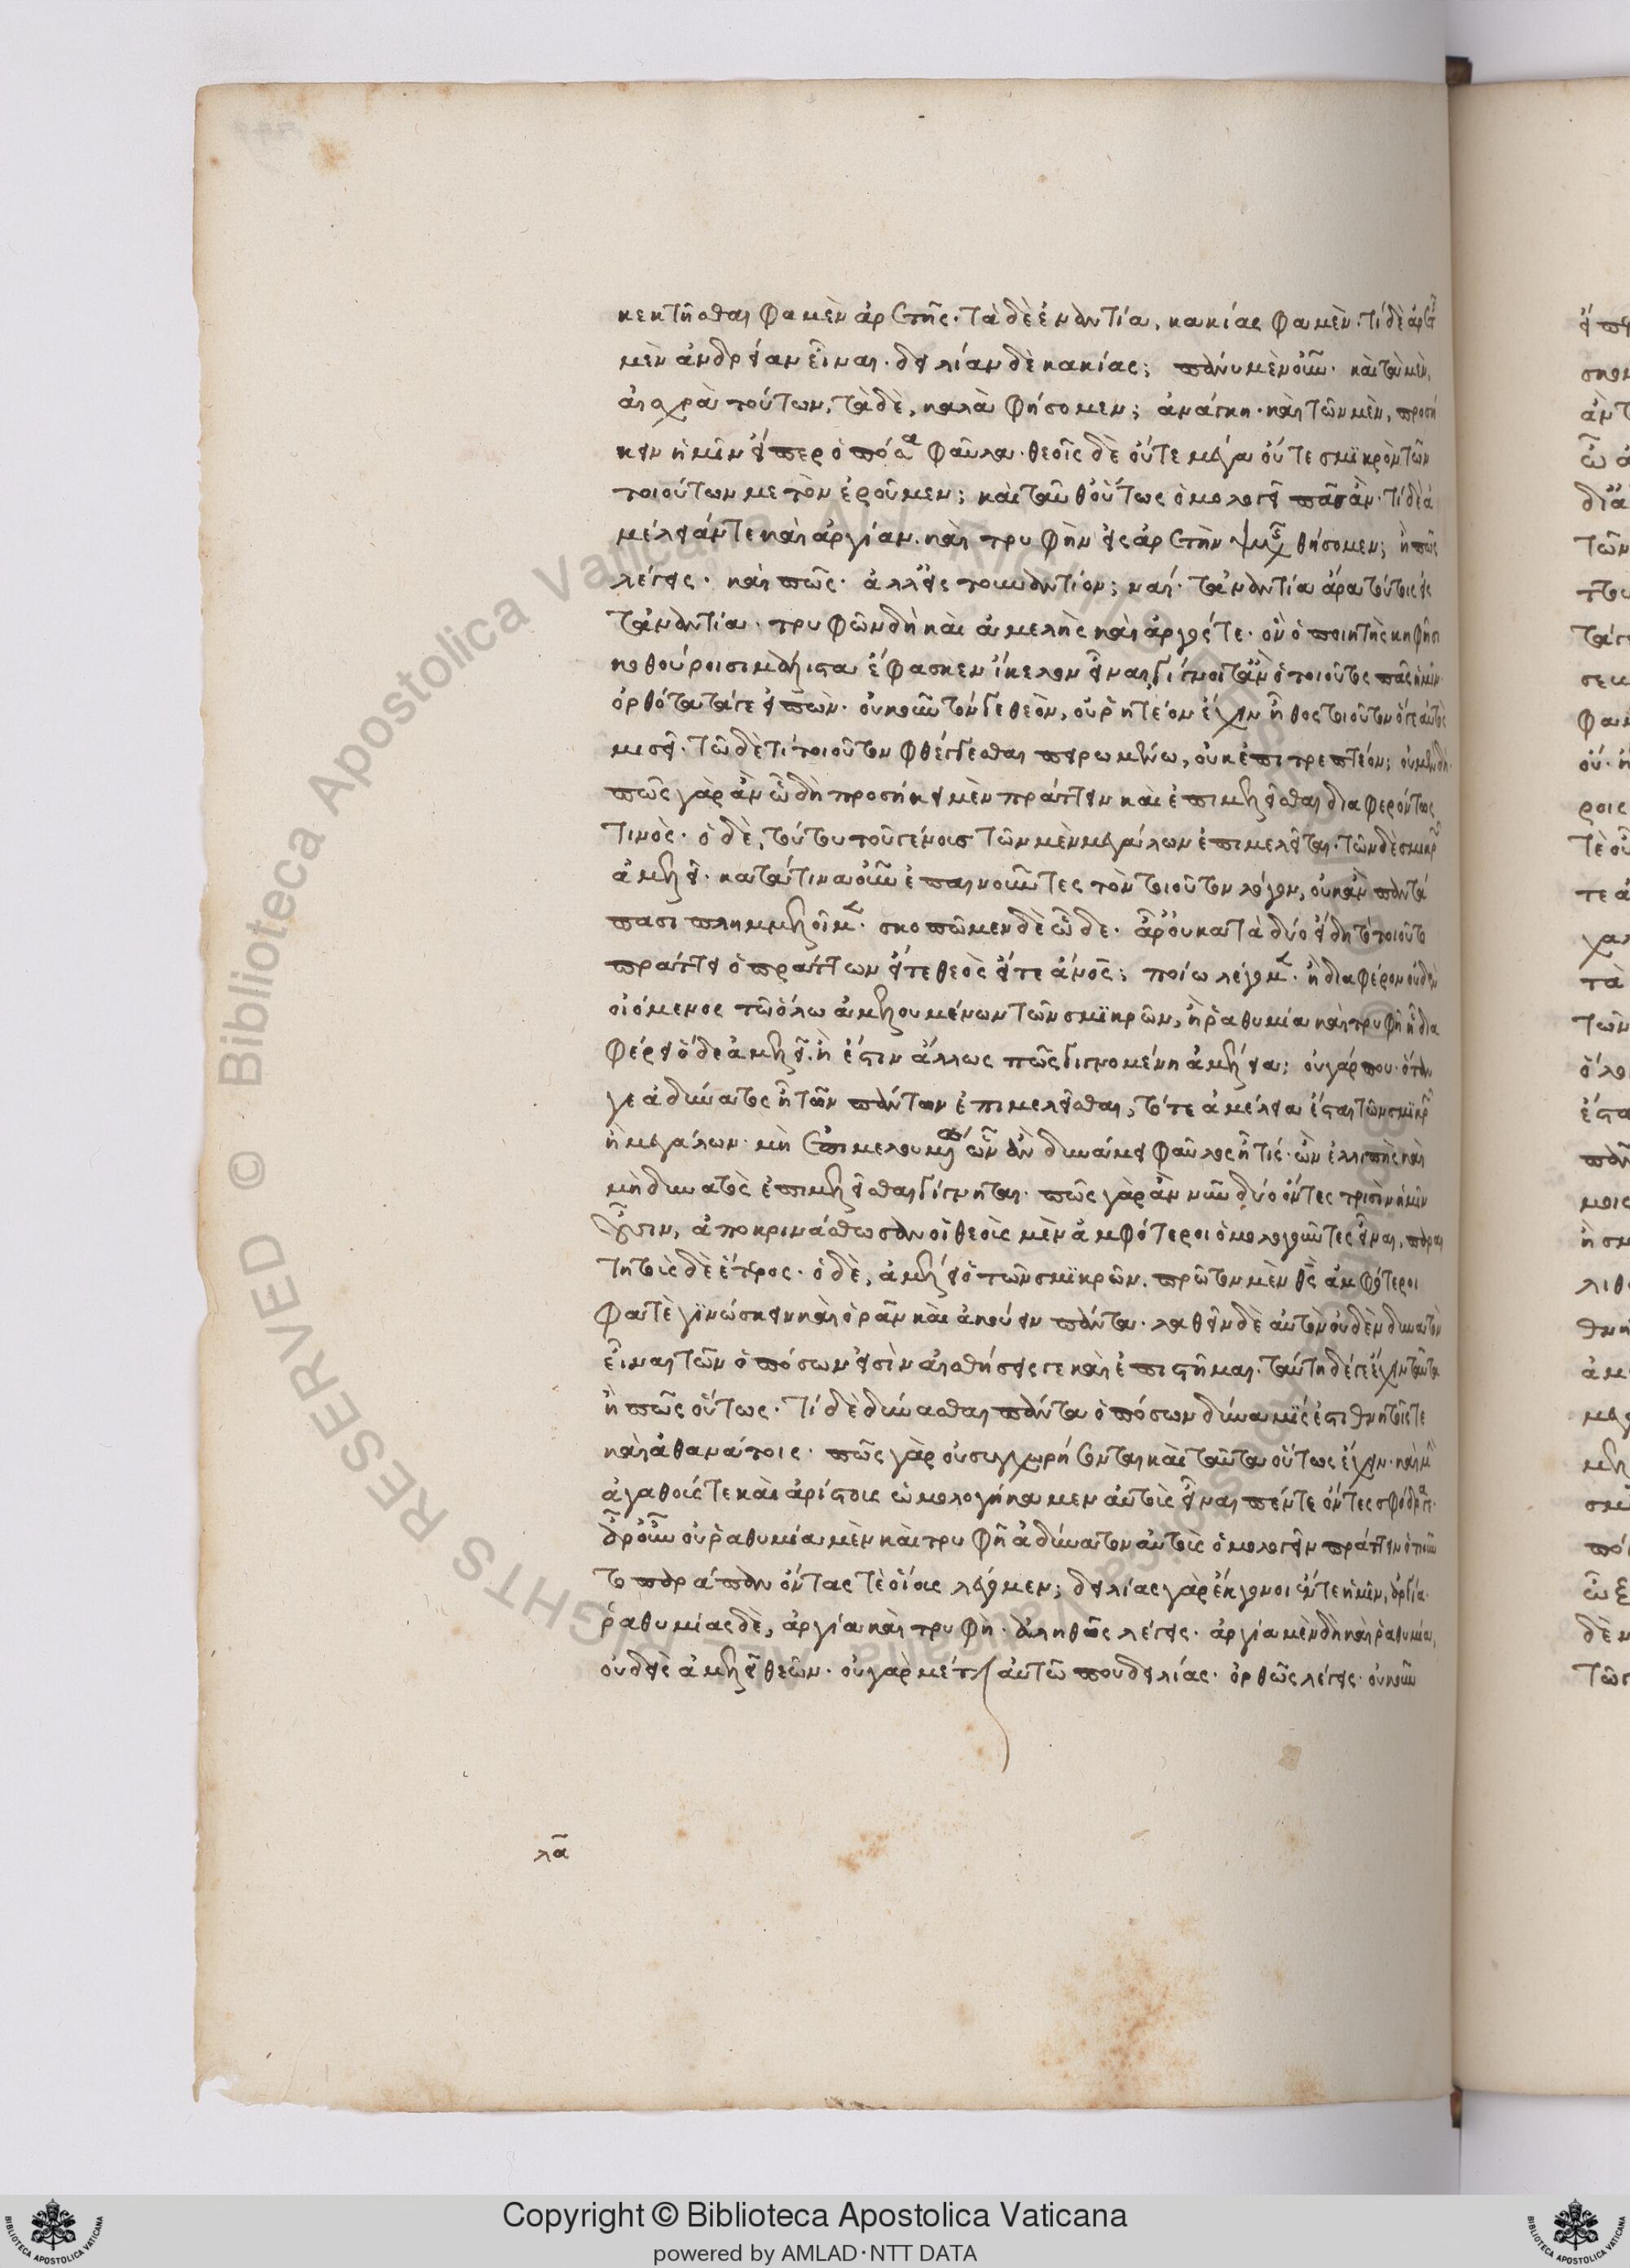 κεκτῆσθαι φαμὲν ἀρετῆς· τὰ δὲ ἐναντία, κακίας φαμέν· τί δὲ ἀρετῆς
μὲν ἀνδρείαν εἶναι· δειλίαν δὲ κακίας; πάνυ μὲν οὖν· καὶ τὰ μὲν,
αἰσχρὰ τούτων, τὰ δὲ, καλὰ φήσομεν; ἀνάγκη· καὶ τῶν μὲν, προσή
κειν ἡμῖν εἴπερ ὁπόσα φαῦλα· θεοῖς δὲ οὔτε μέγα οὔτε σμϊκρὸν τῶν
τοιούτων μετὸν ἐροῦμεν; καὶ ταῦθ' οὕτως ὁμολογεῖ πᾶς ἄν· τί δὲ ἀ
μέλειάν τε καὶ ἀργίαν. καὶ τρυφὴν εἰς ἀρετὴν ψυχῆς θήσομεν; ἢ πῶς
λέγεις· καὶ πῶς· ἀλλ' εἰς τοὐναντίον; ναί· τἀναντία ἄρα τούτοις εἰς
τἀναντία· τρυφῶν δὴ καὶ ἀμελὴς καὶ ἀργός τε· ὃν ὁ ποιητὴς κηφῆσι
κοθούροισι μάλιστα ἔφασκεν εἴκελον εἶναι γίγνοιτ' ἂν ὁ τοιοῦτος πᾶς ἡμῖν·
ὀρθότατά γε εἰπών· οὐκοῦν τόν γε θεὸν, οὐ ῥητέον ἔχειν ἦθος τοιοῦτον ὅ γε αὐτὸς
μισεῖ· τῷ δὲ τὶ τοιοῦτον φθέγγεσθαι πειρωμένω, οὐκ ἐπιτρεπτέον; οὐ μὲν δή·
πῶς γὰρ ἂν ὧ δὴ προσήκει μὲν πράττειν καὶ ἐπιμελεῖσθαι διαφερόντως
τινὸς· ὁ δὲ, τούτου τοῦ γένους τῶν μὲν μεγάλων ἐπιμελεῖται· τῶν δὲ σμικρῶν
ἀμελεῖ· κατὰ τίνα οὖν ἐπαινοῦντες τὸν τοιοῦτον λόγον, οὐκ ἂν παντά
πασι πλημμελοῖμεν· σκοπῶμεν δὲ ὧδε· ἆρ' οὐ κατὰ δύο εἴδη τὸ τοιοῦτο
πράττει ὁ πράττων εἴτε θεὸς εἴτε ἄνος; ποίω λέγομεν· ἢ διαφέρον οὐδὲν
οἰόμενος τῷ ὅλω ἀμελουμένων τῶν σμϊκρῶν, ἢ ῥαθυμία καὶ τρυφῆ εἰ δια
φέρει ὁ δὲ ἀμελεῖ. ἢ ἔστιν ἄλλως πῶς γιγνομένη ἀμέλεια; οὐ γάρ που· ὅταν
γε ἀδύνατος ἦ τῶν πάντων ἐπιμελεῖσθαι, τότε ἀμέλεια ἔσται τῶν σμικρῶν
ἢ μεγάλων· μὴ ἐπιμελουμένω ὧν ἂν δυνάμει φαῦλος ἦ τίς· ὢν ἐλλιπὴς καὶ
μὴ δυνατὸς ἐπιμελεῖσθαι γίγνηται· πῶς γὰρ ἄν· νῦν δύο ὄντες τρισὶν ἡμῖν
οὖσιν, ἀποκρινάσθωσαν οἳ θεοὺς μὲν ἀμφότεροι ὁμολογοῦντες εἶναι, παραι
τητοὺς δὲ ἕτερος· ὁ δὲ, ἀμελεῖς τῶν σμϊκρῶν. πρῶτον μὲν θεοὺς ἀμφότεροι
φατὲ γϊνώσκειν καὶ ὁρᾶν καὶ ἀκούειν πάντα· λαθεῖν δὲ αὐτοὺς οὐδὲν δυνατὸν
εἶναι τῶν ὁπόσων εἰσὶν αἰσθήσεις τε καὶ ἐπιστῆμαι· ταύτη δέ γε ἔχειν ταῦτα
ἢ πῶς οὕτως· τί δὲ δύνασθαι πάντα ὁπόσων δύναμϊς ἐστι θνητοῖς τε
καὶ ἀθανάτοις· πῶς γὰρ οὐ συγχωρήσονται καὶ ταῦτα οὕτως ἔχειν· καὶ μὴν
ἀγαθούς τε καὶ ἀρίστους ὡμολογήκαμεν αὐτοὺς εἶναι πέντε ὄντες σφόδρα γε·
ἆρ' οὖν οὐ ῥαθυμία μὲν καὶ τρυφῆ ἀδύνατον αὐτοὺς ὁμολογεῖν πράττειν ὁτιοῦν
τὸ παράπαν ὄντας γε οἵους λέγομεν; δειλίας γὰρ ἔκγονος ἔν τε ἡμῖν, ἀργία·
ῥαθυμίας δὲ, ἀργία καὶ τρυφὴ· ἀληθῶς λέγεις· ἀργία μὲν δὴ καὶ ῥαθυμία,
οὐδεὶς ἀμελεῖ θεῶν· οὐ γὰρ μέτεστιν αὐτῷ που δειλίας· ὀρθῶς λέγεις· οὐκοῦν
λᾶ
Copyright © Biblioteca Apostolica Vaticana
powered by AMLAD·NTT DATA